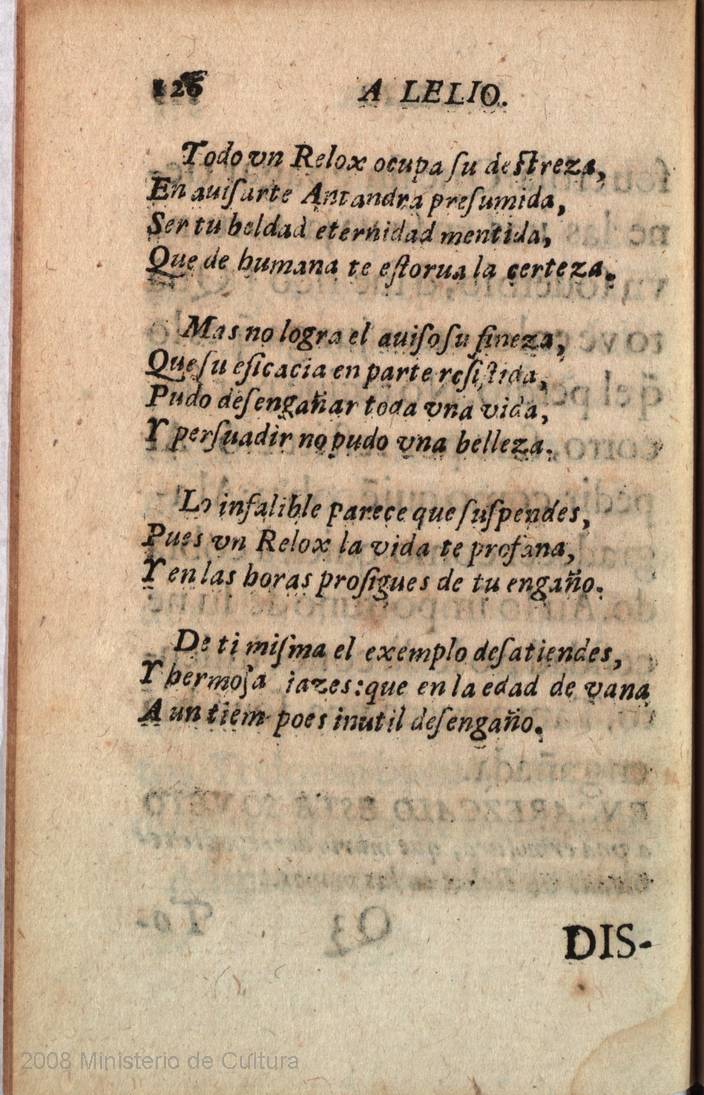 126 A LELIO.
Todo vn Relox ocupa ſu deſtreza,
En auiſarte Antandra preſumida,
Ser tu beldad eternidad mentida,
Que de humana te eſtorua la certeza.
Mas no logra el auiſo ſu fineza,
Que ſu eficacia en parte reſiſtida,
Pudo deſengañar toda vna vida,
Y perſuadir no pudo vna belleza.
Lo infalible parece que ſuſpendes,
Pues vn Relox la vida te profana,
Y en las horas proſigues de tu engaño.
De ti miſma el exemplo deſatiendes,
Y hermoſa iazes: que en la edad de vana
A un tiem poes inutil deſengaño.
DIS-
2008 Ministerio de Cultura